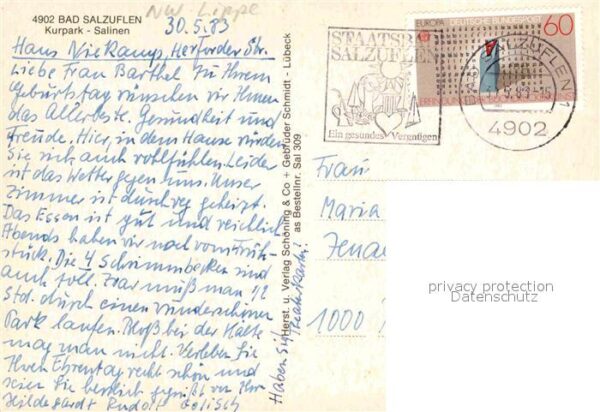 4902 BAD SALZUFLEN
Kurpark - Salinen
NW Lippe
30.5.83
Haus Niekamp, Herforder Str.
Liebe Frau Barthel zu Ihrem
Geburtstag wünschen wir Ihnen
das Allerbeste. Gesundheit und
Freude. Hier, in dem Hause würden
Sie sich auch wohlfühlen. Leider
ist das Wetter gegen uns. Unser
Zimmer ist durchweg geheizt.
Das Essen ist gut und reichlich
Abends haben wir noch vom Früh-
stück. Die 4 Schwimmbecken sind
auch toll. Zwar muß man 1/2
Std. durch einen wunderschönen
Park laufen. Bloß bei der Kälte
mag man nicht. Verleben Sie
Ihren Ehrentag recht schön und
seien Sie herzlich gegrüßt von Ihren
Hildegardt Rudolf
Haben Sie
Herst. u. Verlag Schöning & Co + Gebrüder Schmidt - Lübeck
as Bestellnr. Sal 309
STAATSBAD
SALZUFLEN
Ein gesundes Vergnügen
EUROPA DEUTSCHE BUNDESPOST
60
BAD SALZUFLEN 1
4902
Frau
Maria
Jenae
1000
privacy protection
Datenschutz